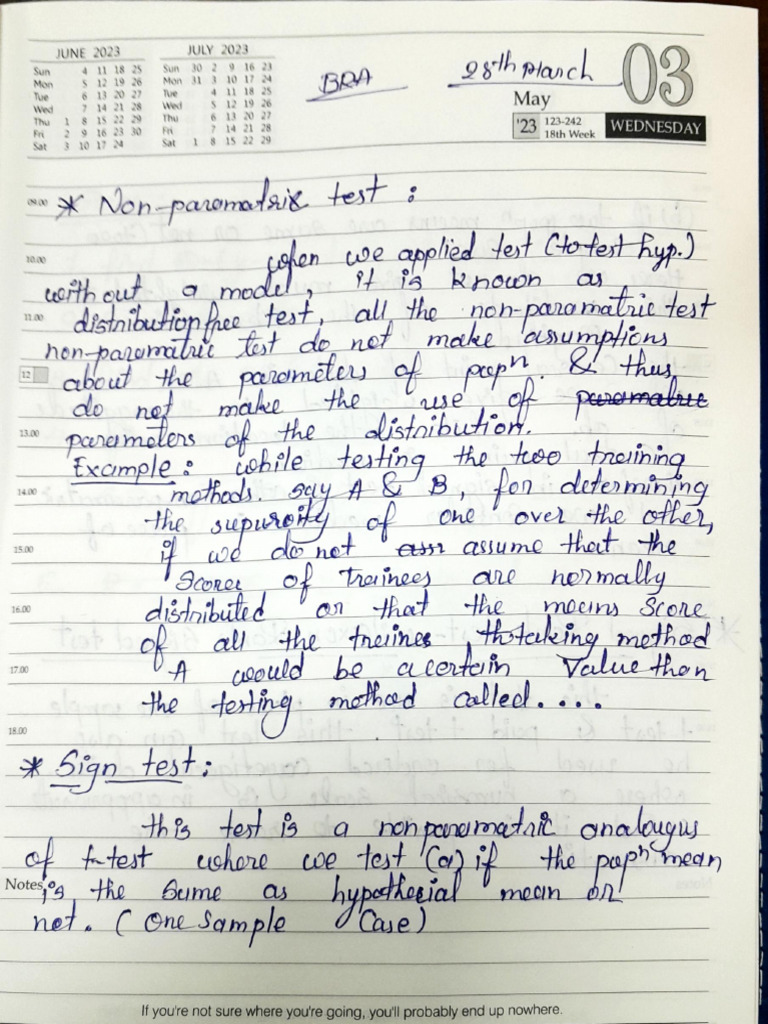 JUNE 2023
Sun 4 11 18 25
Mon 5 12 19 26
Tue 6 13 20 27
Wed 7 14 21 28
Thu 1 8 15 22 29
Fri 2 9 16 23 30
Sat 3 10 17 24
JULY 2023
Sun 30 2 9 16 23
Mon 31 3 10 17 24
Tue 4 11 18 25
Wed 5 12 19 26
Thu 6 13 20 27
Fri 7 14 21 28
Sat 1 8 15 22 29
BRA
28th March
03
May
'23 123-242
18th Week
WEDNESDAY
09.00 * Non-paramatric test :
10.00 when we applied test (to test hyp.)
without a model, it is known as
11.00 distribution free test, all the non-paramatric test
non-paramatric test do not make assumptions
12 about the parameters of popn. & thus
do not make the use of paramatric
13.00 parameters of the distribution.
Example : while testing the two training
14.00 methods. say A & B, for determining
the supuroity of one over the other,
15.00 if we do not assume that the
Scorer of Trainees are normally
16.00 distributed or that the means Score
of all the trainees taking method
17.00 A would be a certain Value than
the testing method called....
18.00
* Sign test :
this test is a non paramatric analougus
of t-test where we test (a) if the popn mean
Notes is the same as hypothecial mean or
not. (One Sample Case)
If you're not sure where you're going, you'll probably end up nowhere.